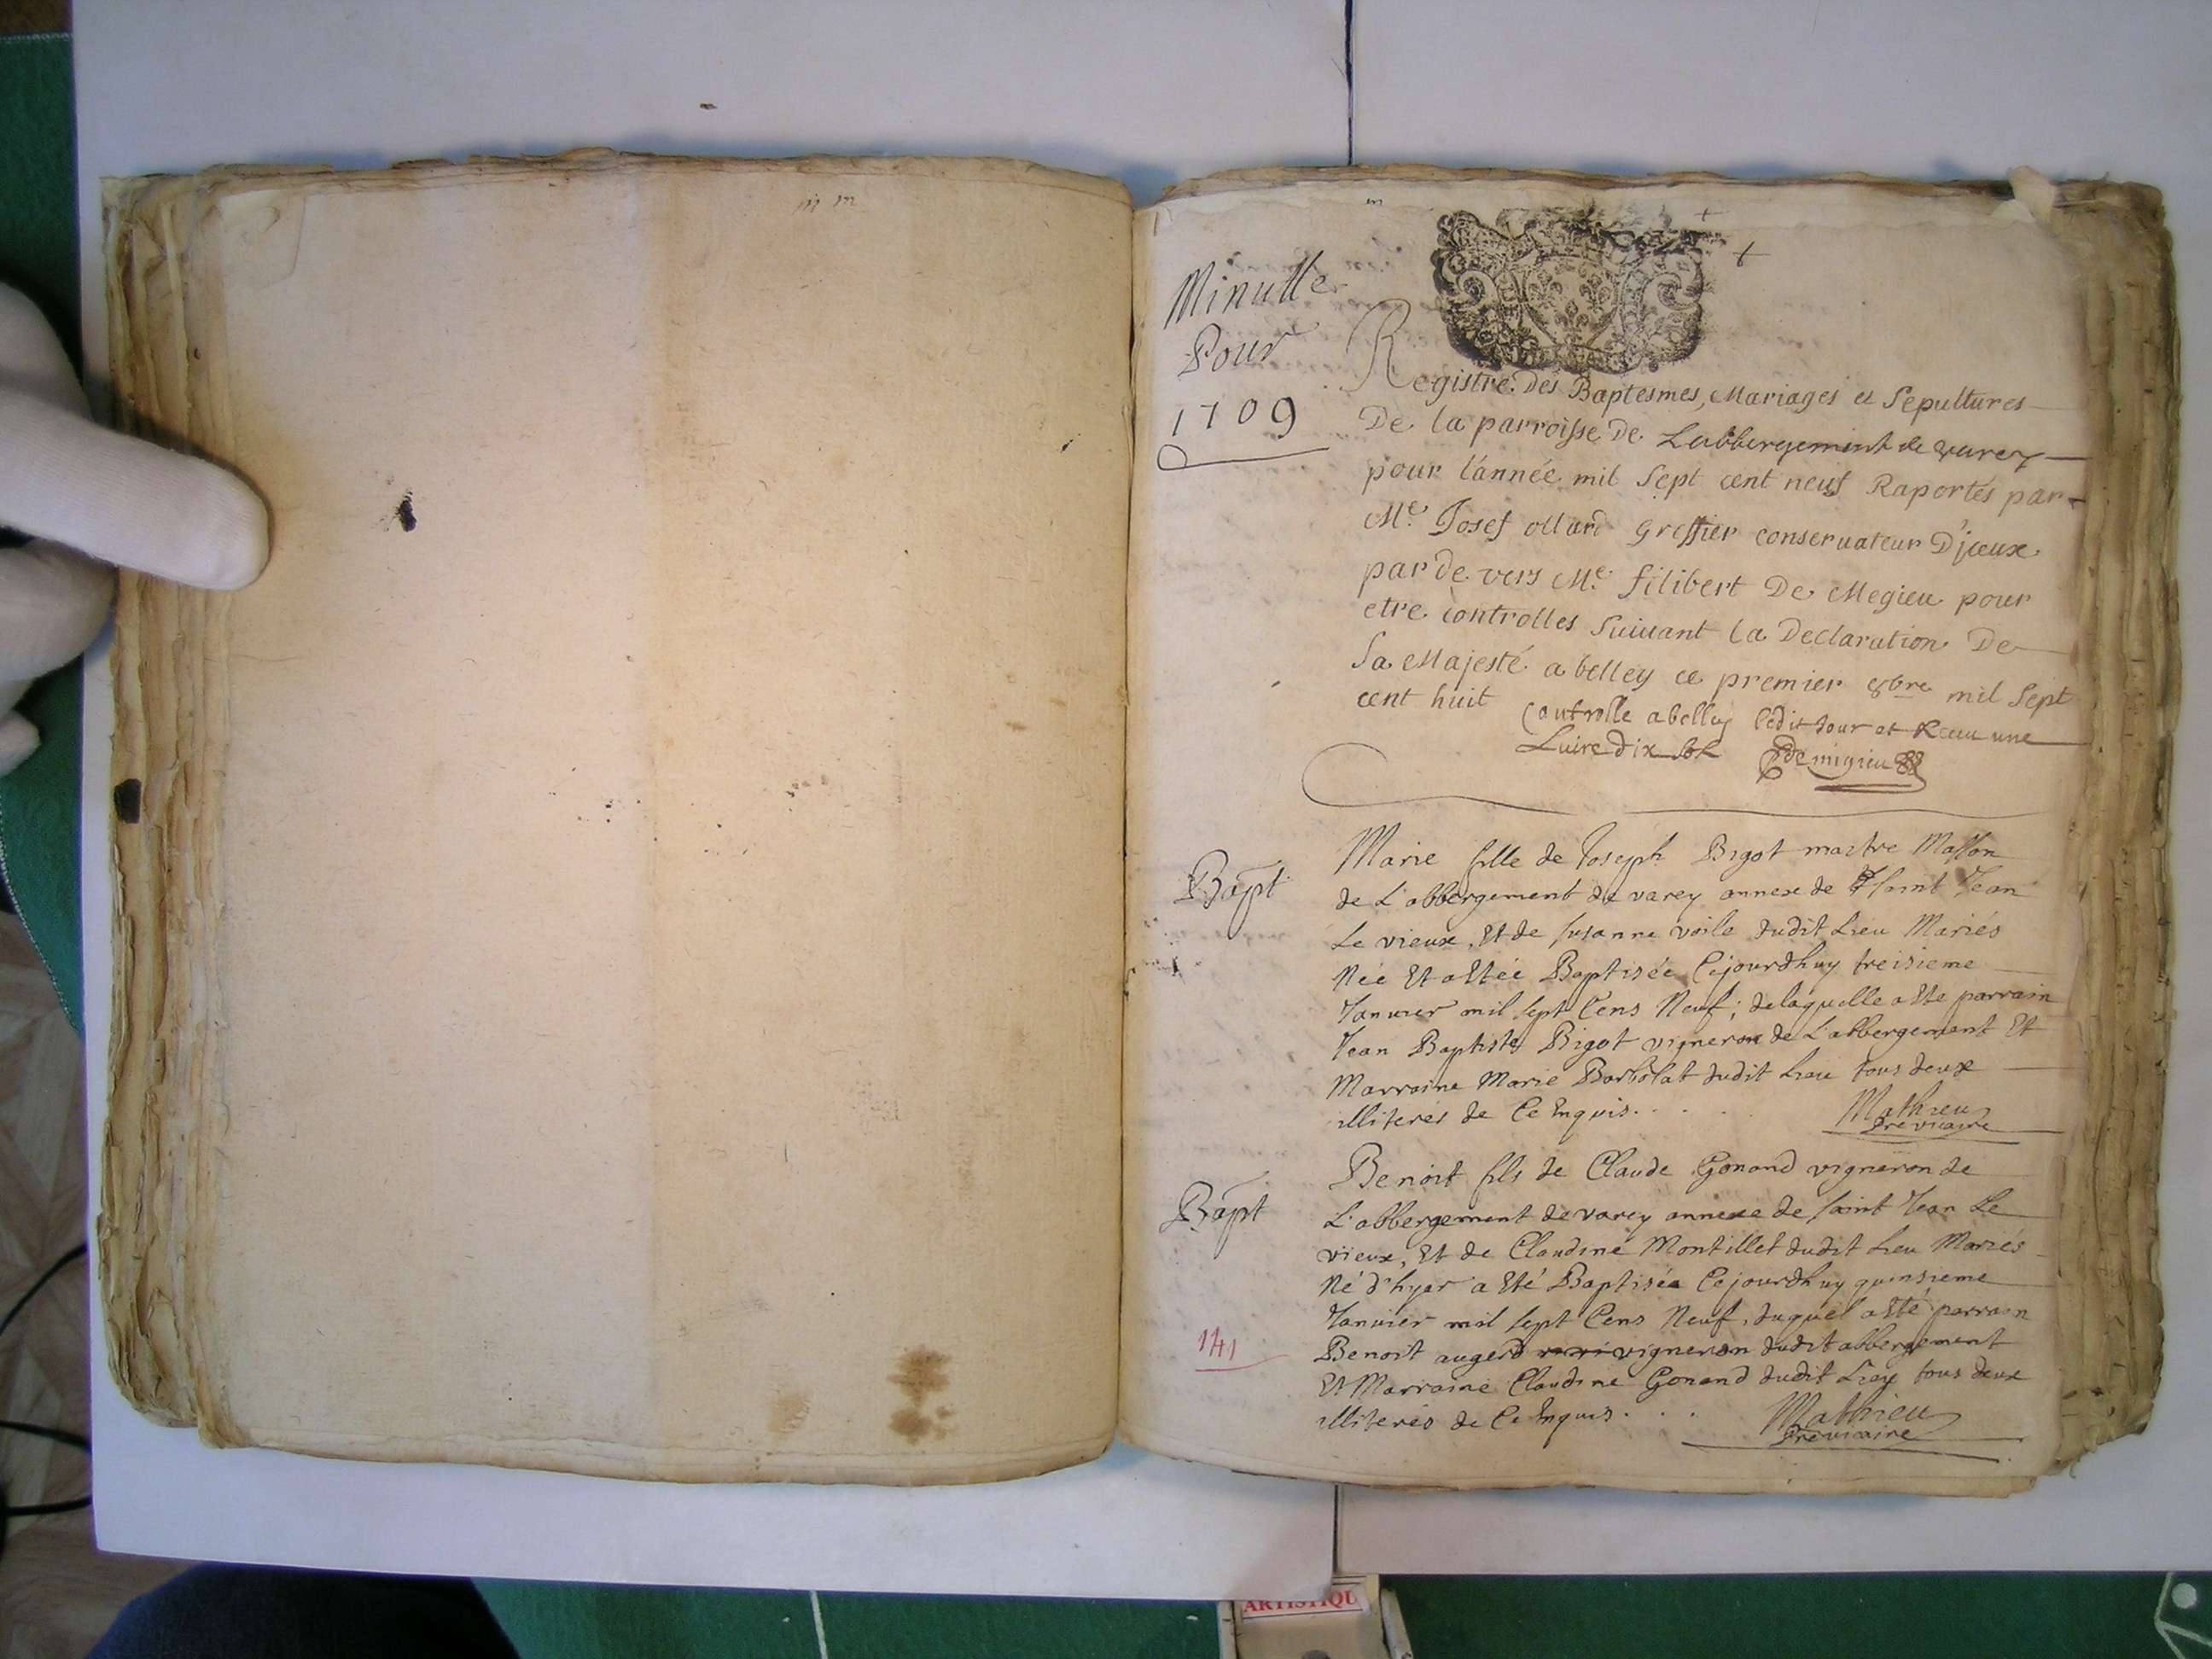 m m
m
Minutte
Pour
1709
Registre Des Baptesmes, Mariages et Sepultures
De la parroisse De Labbergement de varey
pour l'année mil Sept cent neuf Raportés par
Me Josef ollard Greffier conseruateur D'jceux
par de vers Me filibert De Megieu pour
etre controlles Suiuant la Declaration De
Sa Majesté a belley ce premier 8bre mil Sept
cent huit
Controlle a belley ledit Jour et Receu une
Liure dix sols Demigieu
Bapt
Marie fille de Joseph Bigot maitre Masson
de L'abbergement de varey annexe de Saint Jean
Le vieux, Et de susanne voile dudit Lieu Mariés
Née Et a Etée Baptisée Cejourdhuy treisieme
Januier mil sept Cens Neuf; de laquelle a Ete parrain
Jean Baptiste Bigot vigneron de L'abbergement Et
Marraine Marie Barbolat dudit Lieu tous deux
illiterés de Ce Enquis. . . .
Mathieu
Pre vicaire
Bapt
Benoit fils de Claude Gonand vigneron de
L'abbergement de varey annexe de saint Jean Le
vieux, Et de Claudine Montillet dudit Lieu Mariés
Né d'hyer a Eté Baptisée Cejourdhuy quinsieme
Januier mil sept Cens Neuf, duquel a Eté parrain
Benoit augerd vigneron dudit abbergement
Et Marraine Claudine Gonand dudit Lieu tous deux
illiterés de Ce Enquis. . .
Mathieu
Pre vicaire
141
ARTISTIQU